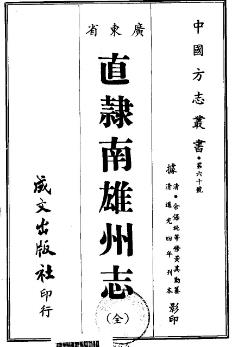 中國方志叢書・第六十號
據清・余保純等修黃其勤纂
清道光四年刊本影印
廣東省
直隸南雄州志
(全)
成文出版社印行